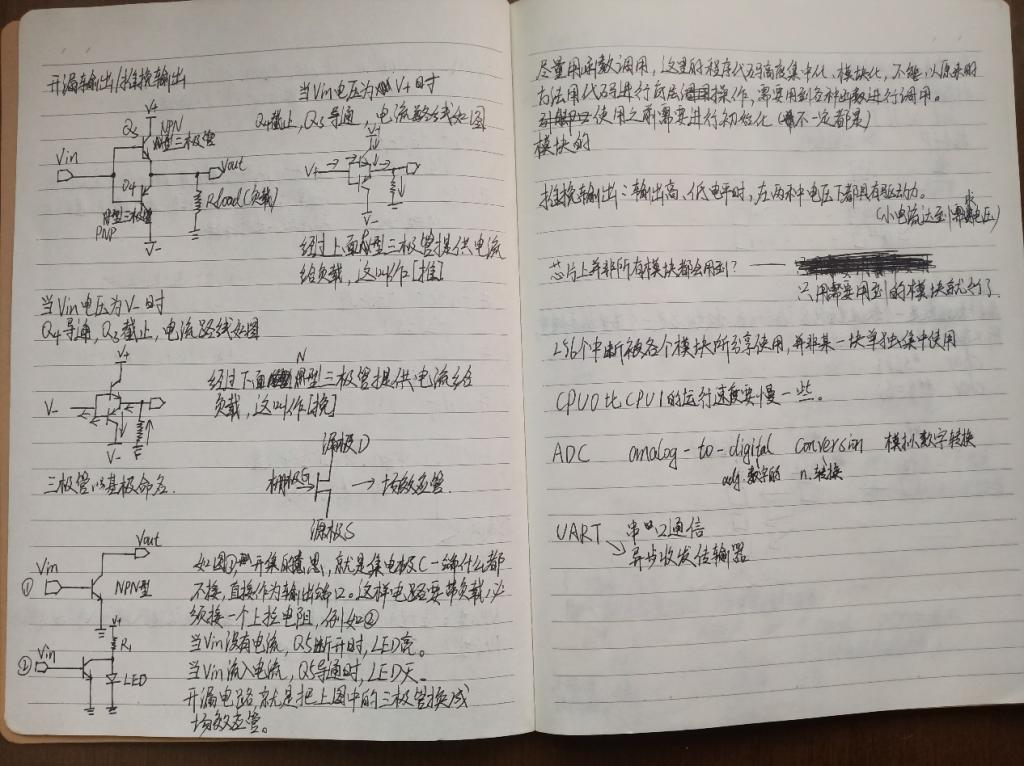 开漏输出/推挽输出
当Vin电压为V+时
Q4截止,Q3导通,电流路线如图
V+
Q3
NPN
型三极管
Vin
Vout
Q4
Rload(负载)
型三极管
PNP
V-
V+
V+
V-
经过上面型三极管提供电流
给负载,这叫作[推]
当Vin电压为V-时
Q4导通,Q3截止,电流路线如图
V+
V-
V-
N
经过下面型三极管提供电流给
负载,这叫作[挽]
三极管以基极命名.
漏极D
栅极G
→场效应管.
源极S
Vout
Vin
①
NPN型
如图①开集的意思,就是集电极C一端什么都
不接,直接作为输出端口。这样电路要带负载,必
须接一个上拉电阻,例如②
V+
R1
②
Vin
LED
当Vin没有电流,Q5断开时,LED亮。
当Vin流入电流,Q5导通时,LED灭.
开漏电路,就是把上图中的三极管换成
场效应管。
尽量用函数调用,这里的程序代码高度集中化、模块化,不能以原来的
方法用代码进行底层操作,需要用到各种函数进行调用。
使用之前需要进行初始化(不一定都是)
模块的
推挽输出:输出高、低电平时,在两种电压下都具有驱动力。
(小电流达到需求电压)
芯片上并非所有模块都会用到? ——
只用需要用到的模块就行了.
256个中断被各个模块所分享使用,并非某一块单独集中使用
CPU0比CPU1的运行速度要慢一些。
ADC analog-to-digital conversion 模拟数字转换
adj.数字的 n.转换
UART 串口通信
异步收发传输器